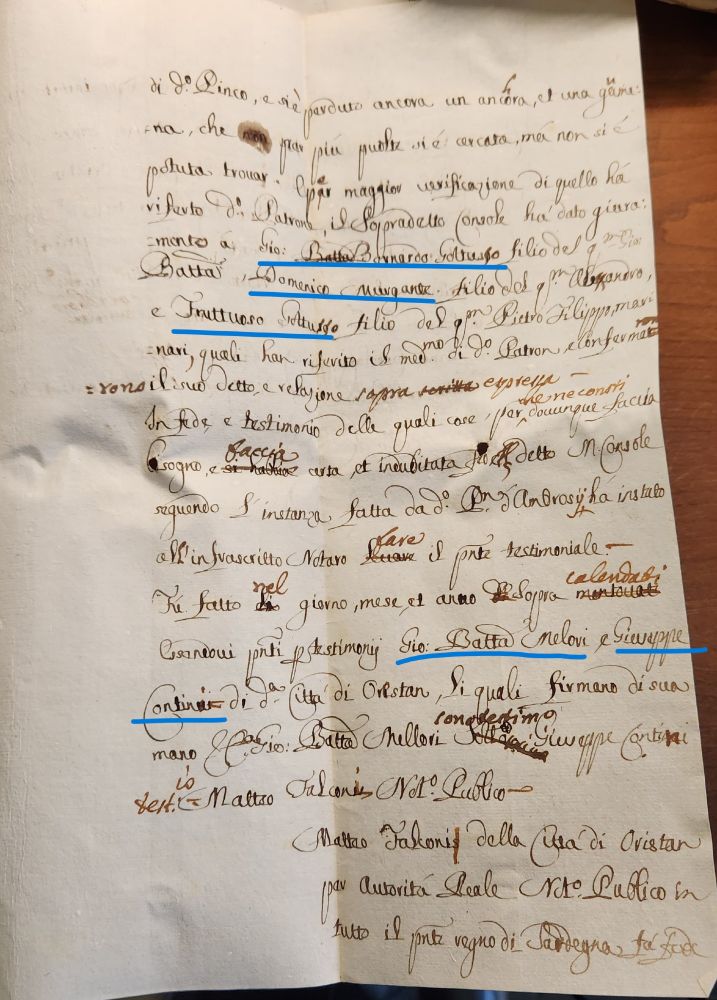 di d.º Pinco, e si è perduto ancora un anchora, et una gume
=na, che per più puolte si é cercata, má non si é
potuta trouar. E per maggior verificazione di quello há
riferto d.º Patrone, il Sopradetto Console há dato giura=
=mento á Gio: Batta Bernardo Soltusso filio del q.m Gio:
Batta, Domenico Murgante filio del q.m Alexandro,
e Fruttuoso Soltusso filio del q.m Pietro Filippo, mari=
=nari, quali han riferito il med.mo di d.º Patron, e confermaron
=rono il suo detto, e relazione sopra scritta espressa
In fede, e testimonio delle quali cose, per che ne constri douunque faccia
bisogno, e faccia certa, et indubitata detto M Console
seguendo l'instanza fatta da d.º P.n d'Ambrosij há instato
all'infrascritto Notaro fare il pnte testimoniale.
Fú fatto nel giorno, mese, et anno Sopra calendati
Essendoui pnti p testimonij Gio: Batta Melori, e Giuseppe
Contini di d.a Cittá di Oristan, li quali firmano di sua
mano Gio: Batta Mellori sono testimo Giuseppe Contini
test.io = Matteo Falconis Not.º Publico
Matteo Falconis della Cittá di Oristan
per Autoritá Reale Not.º Publico in
tutto il pnte regno di Sardegna fá fede